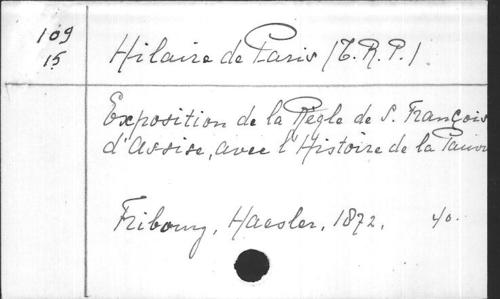 109
15
Hilaire de Paris (T.R.P.)
Exposition de la Règle de S. François
d'Assise, avec l'Histoire de la Pauvr
Fribourg, Haesler, 1872. 4o.